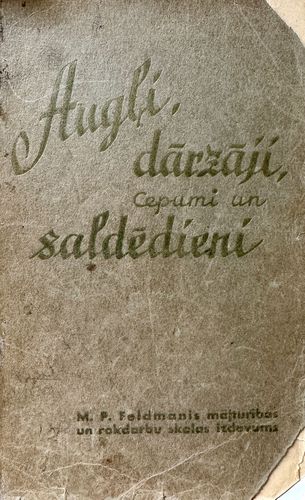 Augļi,
dārzāji,
Cepumi un
saldēdieni
M. P. Feldmanis mājturības
un rokdarbu skolas izdevums